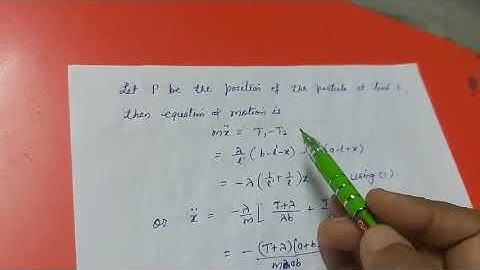 Let P be the position of the particle at time t,
then equation of motion is
mẍ = T₁-T₂
= λ/l' (b-l'-x) (a-l+x)
= -λ(1/l' + 1/l)x using (1)
or ẍ = -λ/m [ T+λ/λb + T
= - (T+λ)(a+b / mab